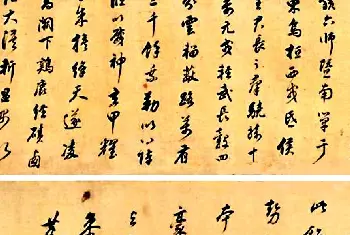 該六師暨南單于
東烏桓西戎氐侯
王君長之群驍騎十
萬元戎輕武長轂四
分雲輜蔽路萬有
三千餘乘勒以八陣
莅以威神玄甲耀
朱旗絳天遂凌
高闕下雞鹿經磧鹵
大漠斬溫禺
此
勢
豪